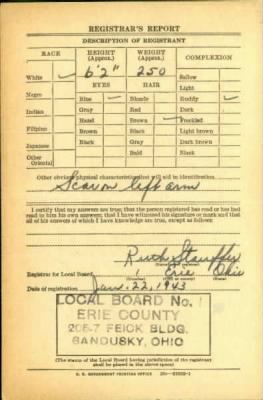 REGISTRAR'S REPORT
DESCRIPTION OF REGISTRANT
RACE HEIGHT (Approx.) WEIGHT (Approx.) COMPLEXION
6'2" 250
White ✓ Sallow
EYES HAIR Light
Negro Blue ✓ Blonde Ruddy ✓
Indian Gray Red Dark
Hazel Brown ✓ Freckled
Filipino Brown Black Light brown
Japanese Black Gray Dark brown
Other Oriental Bald Black
Other obvious physical characteristics that will aid in identification
Scar on left arm
I certify that my answers are true; that the person registered has read or has had
read to him his own answers; that I have witnessed his signature or mark and that
all of his answers of which I have knowledge are true, except as follows:
Ruth Stauffer
Registrar for Local Board 1 Erie Ohio
Date of registration Jan. 22, 1943
LOCAL BOARD No. 1
ERIE COUNTY
205-7 FEICK BLDG.
SANDUSKY, OHIO
(The stamp of the Local Board having jurisdiction of the registrant
shall be placed in the above space)
U. S. GOVERNMENT PRINTING OFFICE